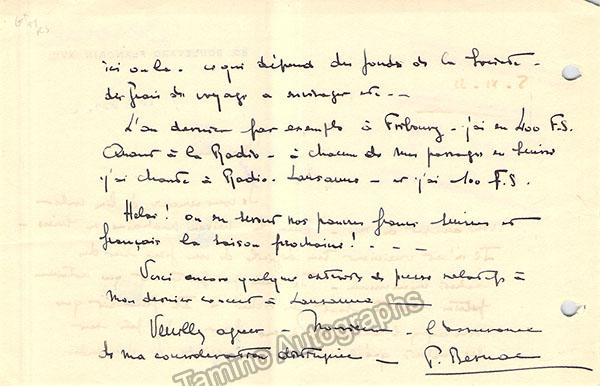 ici ou là - ce qui dépend du fonds de la Société -
des frais de voyage a envisager etc - -
L'an dernier par exemple à Fribourg - j'ai eu 400 F.S.
Quant à la Radio - à chacun de mes passages en Suisse
j'ai chanté à Radio-Lausanne - et j'ai 100 F.S.
Helas! ou en seront nos pauvres francs suisses et
français la saison prochaine! - - -
Voici encore quelques extraits de presse relatifs à
mon dernier concert à Lausanne
Veuillez agréer - Monsieur - l'assurance
de ma considération distinguée - P. Bernac
Tamino Autographs